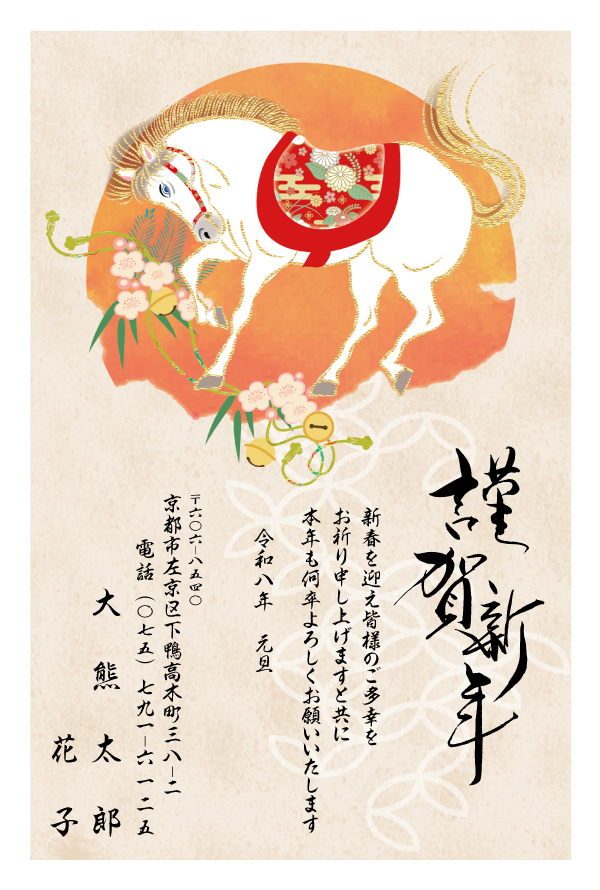 謹賀新年
新春を迎え皆様のご多幸を
お祈り申し上げますと共に
本年も何卒よろしくお願いいたします
令和八年　元旦
〒六〇六-八五四〇
京都市左京区下鴨高木町三八-二
電話（〇七五）七九一-六一二五
大熊太郎
花子